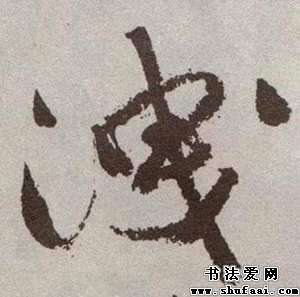 洩
书法爱网
www.shufaai.com